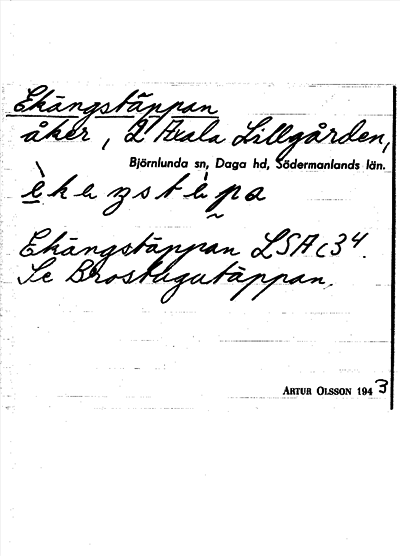 Ekängstäppan
åker, 2 Axala Lillgården,
Björnlunda sn, Daga hd, Södermanlands län.
Ekängstäppan LSA c34.
Se Brostugutäppan.
ARTUR OLSSON 1943